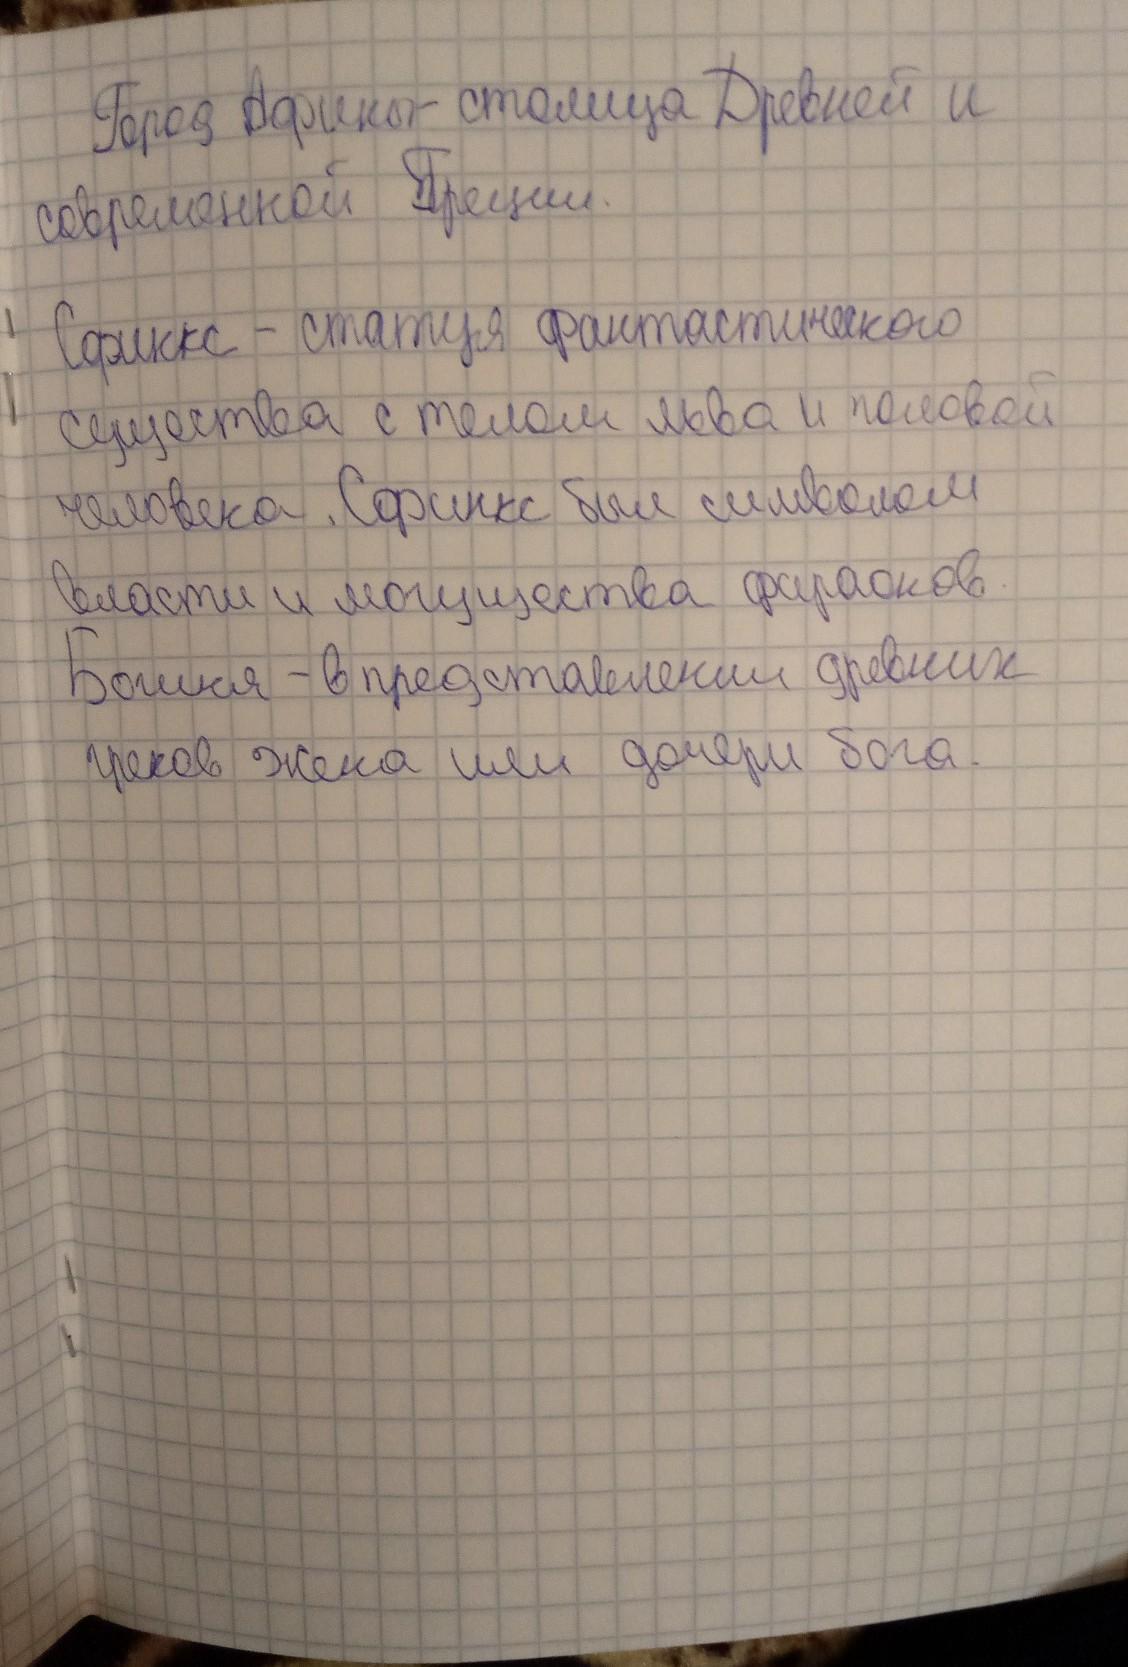 Город Афины - столица Древней и
современной Греции.
Сфинкс - статуя фантастического
существа с телом льва и головой
человека. Сфинкс был символом
власти и могущества фараонов.
Богиня - в представлении древних
греков жена или дочери бога.